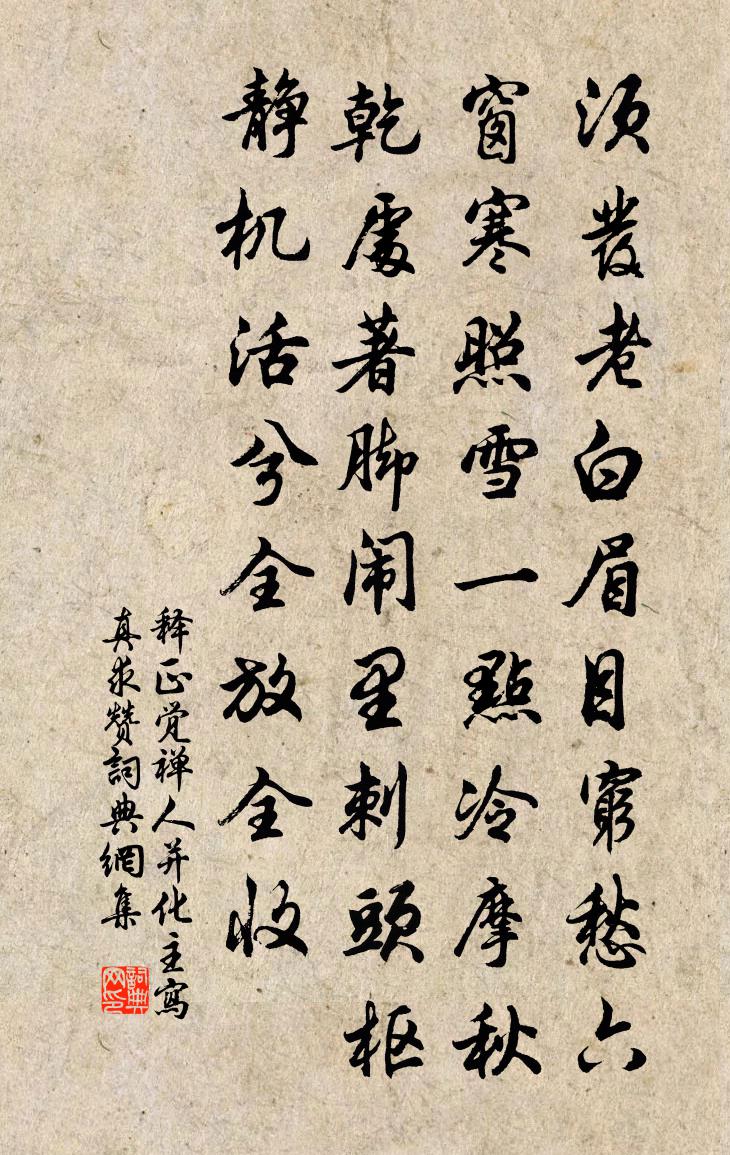 須發老白眉目窮愁六
窗寒照雪一點冷摩秋
乾處著脚闹里刺頭枢
静机活兮全放全收
释正觉禅人并化主寫
真求赞詞典網集
詞典
网印